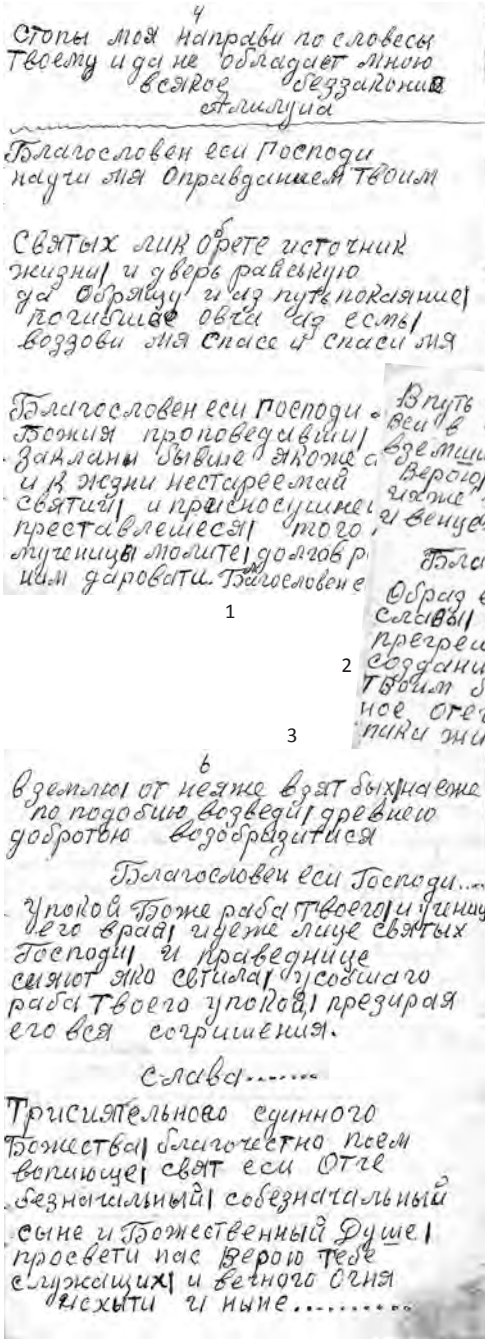 4
Стопы моя направи по словесы
Твоему и да не обладает мною
всякое беззакония
Алилуиа
Благословен еси Господи
научи мя оправданием Твоим
Святых лик обрете источник
жизни/ и дверь райськую
да обрящу и аз путь покаяние/
погибшае овча аз есмь/
воззови мя спасе и спаси мя
Благословен еси Господи
Божия проповедавши/
Заклани бывше якоже а
и к жзни нестареемай
святий/ и присносушней
преставлешеся/ того
мученицы молите/ долгов р
ним даровати. Благословен е
1
В путь
вси в
вземши
Верою/
ихже
и венце
Бла
Образ е
славы/
прегреш
создани
Твоим б
ное отеч
пики жи
2
3
6
в землю/ от неяже взят бых/ на еже
по подобию возведи/ древнею
добротою возобразитися
Благословен еси Господи....
Упокой Боже раба Твоего/ и учини
его врай/ идеже лице святых
Господи/ и праведнице
сияют яко свтила/ усобшаго
раба Твоего упокой/ презирая
его вся согришения.
Слава........
Трисиятельного единного
Божества/ благочестно поем
вопиюще/ свят еси Отче
безначальный/ собезначальный
сыне и Божественный Душе/
просвети нас верою тебе
служащих/ и вечного огня
исхыти и ныне..........